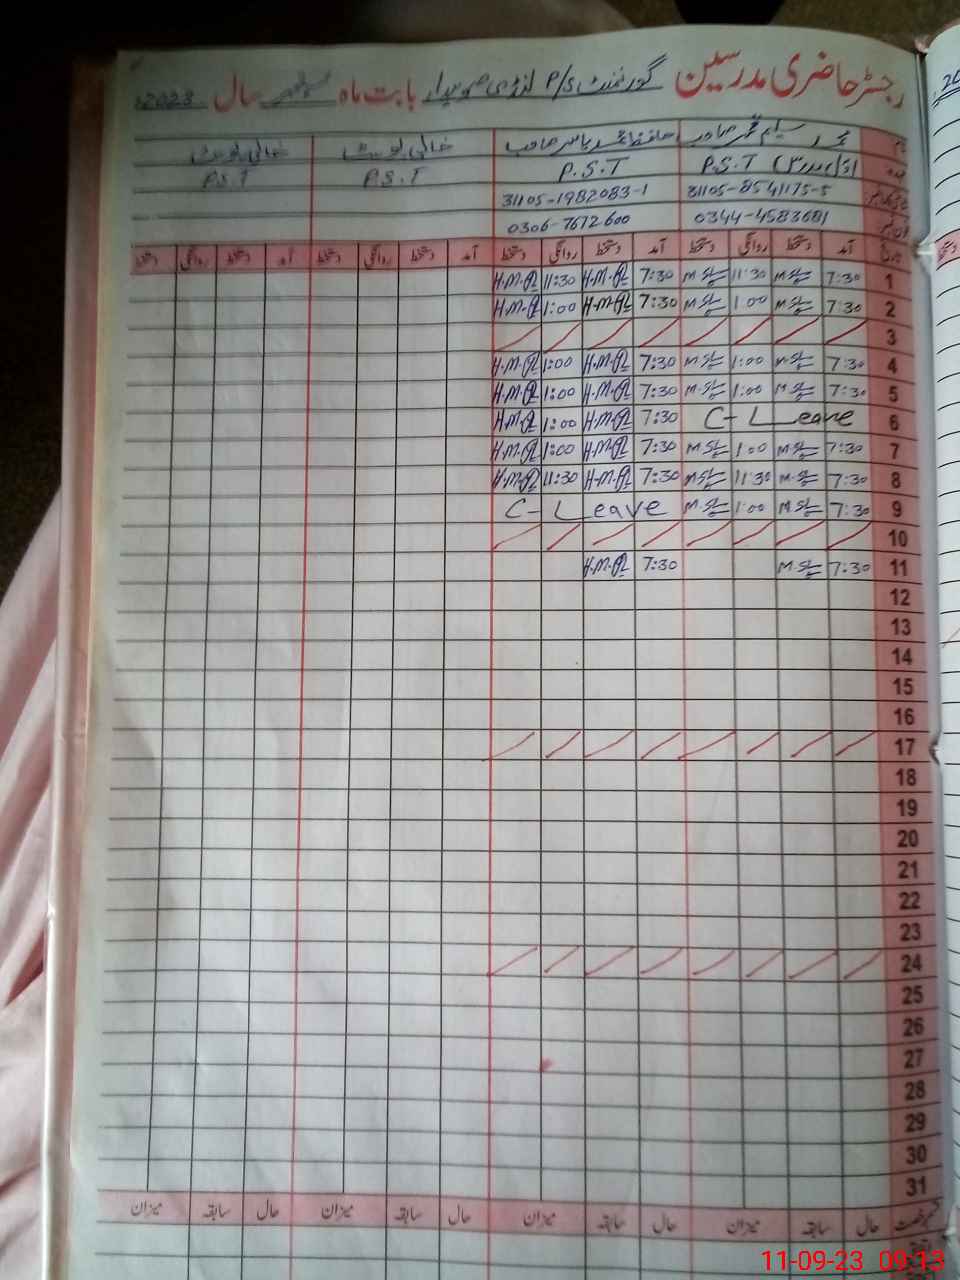 رجسٹر حاضری مدرسین گورنمنٹ P/S لنڈی صوبیدار بابت ماہ ستمبر سال 2023ء
نام محمد سلیم قمر صاحب حافظ محمد یاسر صاحب خالی پوسٹ خالی پوسٹ
عہدہ P.S.T (اول مدرس) P.S.T P.S.T P.S.T
31105-8541175-5 31105-1982083-1
فون نمبر 0344-4583681 0306-7672600
آمد دستخط روانگی دستخط آمد دستخط روانگی دستخط آمد دستخط روانگی دستخط آمد دستخط روانگی دستخط
1 7:30 M.SL 11:30 M.SL 7:30 H.M.R 11:30 H.M.R
2 7:30 M.SL 1:00 M.SL 7:30 H.M.R 1:00 H.M.R
3
4 7:30 M.SL 1:00 M.SL 7:30 H.M.R 1:00 H.M.R
5 7:30 M.SL 1:00 M.SL 7:30 H.M.R 1:00 H.M.R
6 C-Leave 7:30 H.M.R 1:00 H.M.R
7 7:30 M.SL 1:00 M.SL 7:30 H.M.R 1:00 H.M.R
8 7:30 M.SL 11:30 M.SL 7:30 H.M.R 11:30 H.M.R
9 7:30 M.SL 1:00 M.SL C-Leave
10
11 7:30 M.SL 7:30 H.M.R
12
13
14
15
16
17
18
19
20
21
22
23
24
25
26
27
28
29
30
31
قسم رخصت حال سابقہ میزان حال سابقہ میزان حال سابقہ میزان حال سابقہ میزان
11-09-23 09:13